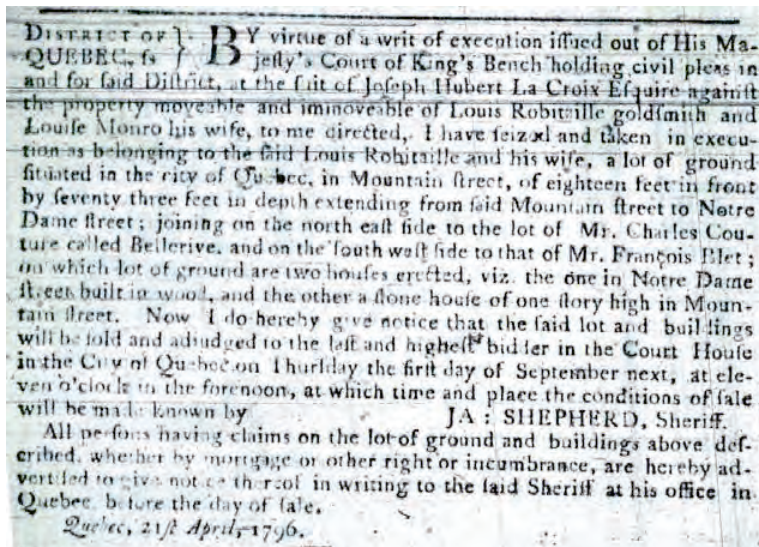 DISTRICT OF } BY virtue of a writ of execution iſſued out of His Ma-
QUEBEC, ſs } jeſty's Court of King's Bench holding civil pleas in
and for ſaid Diſtrict, at the ſuit of Joſeph Hubert La Croix Eſquire againſt
the property moveable and immoveable of Louis Robitaille goldſmith and
Louiſe Monro his wife, to me directed, I have ſeized and taken in execu-
tion as belonging to the ſaid Louis Robitaille and his wife, a lot of ground
ſituated in the city of Quebec, in Mountain ſtreet, of eighteen feet in front
by ſeventy three feet in depth extending from ſaid Mountain ſtreet to Notre
Dame ſtreet; joining on the north eaſt ſide to the lot of Mr. Charles Cou-
ture called Bellerive, and on the ſouth weſt ſide to that of Mr. François Blet;
on which lot of ground are two houſes erected, viz. the one in Notre Dame
ſtreet built in wood, and the other a ſtone houſe of one ſtory high in Moun-
tain ſtreet. Now I do hereby give notice that the ſaid lot and buildings
will be ſold and adjudged to the laſt and higheſt bidder in the Court Houſe
in the City of Quebec on Thurſday the firſt day of September next, at ele-
ven o'clock in the forenoon, at which time and place the conditions of ſale
will be made known by JA: SHEPHERD, Sheriff.
All perſons having claims on the lot of ground and buildings above deſ-
cribed, whether by mortgage or other right or incumbrance, are hereby ad-
vertiſed to give notice thereof in writing to the ſaid Sheriff at his office in
Quebec before the day of ſale.
Quebec, 21ſt April, 1796.